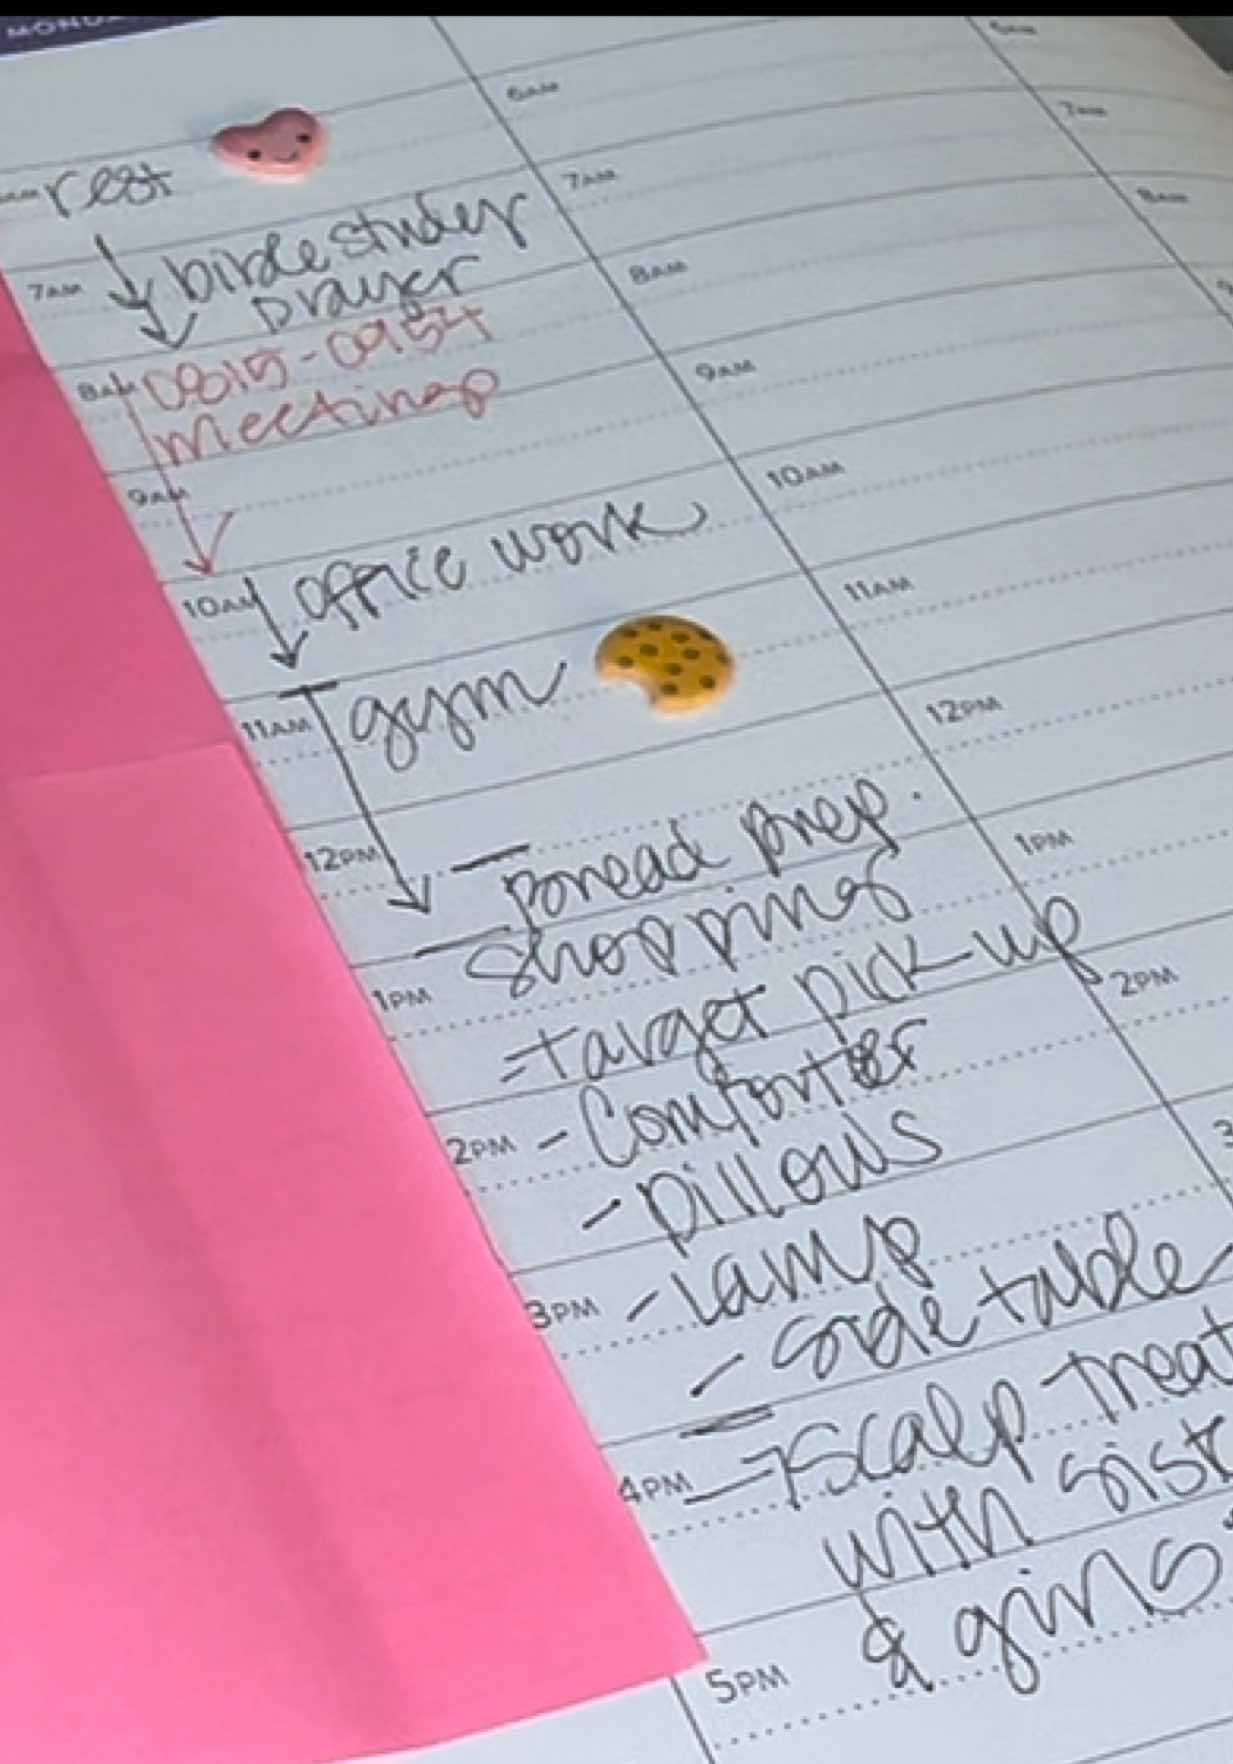 rest
7AM bible study
prayer
8AM 0815-0954
meeting
9AM
10AM office work
11AM gym
12PM Bread prep.
shopping
1PM
=target pick-up
2PM - Comforter
- pillows
3PM - lamp
- side table
4PM => scalp treat
with sist
& girls
5PM
6AM
7AM
8AM
9AM
10AM
11AM
12PM
1PM
2PM
3
6AM
7AM
8AM